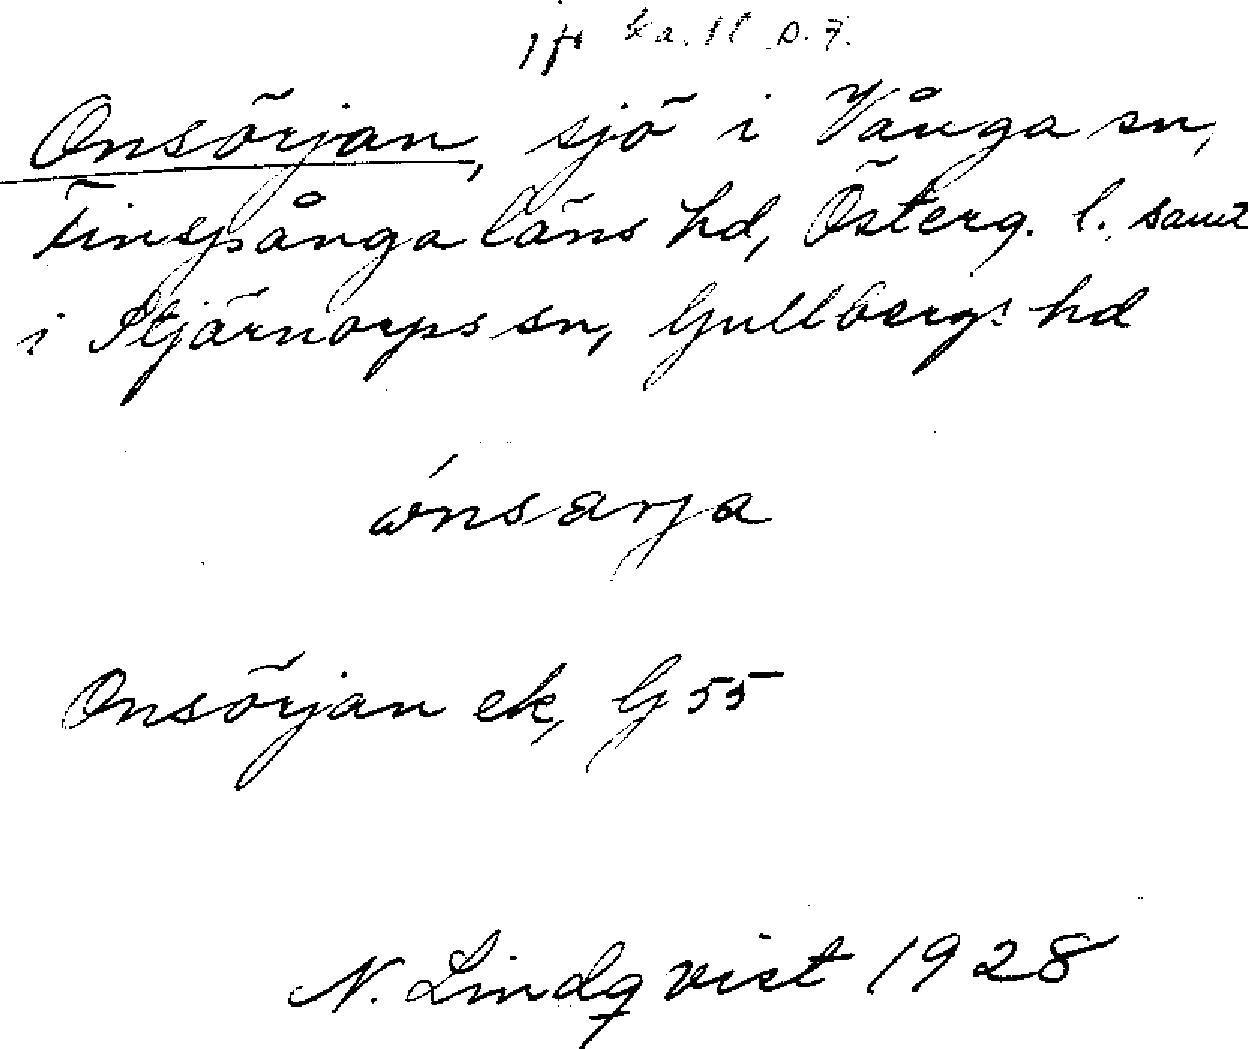 Onsörjan, sjö i Vånga sn,
Finspånga läns hd, Österg. l. samt
i Stjärnorps sn, Gullbergs hd
ónsarja
Onsörjan ek, G 55
N. Lindqvist 1928